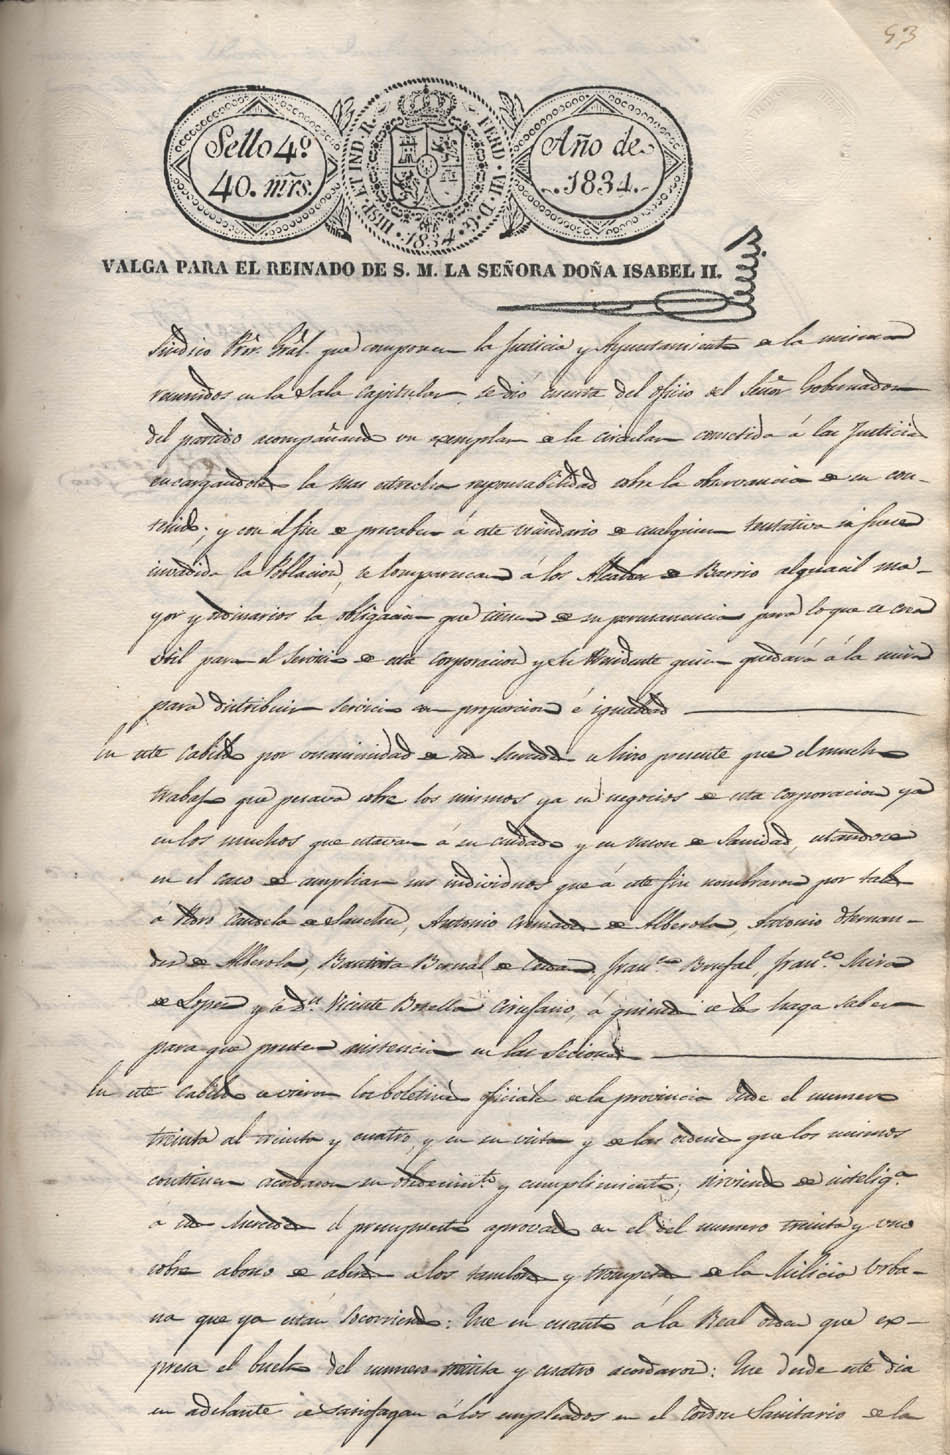 53
Sello 4º
40. mrs.
HISP. ET IND. R. FERD. VII. D. G. 1834
Año de
1834.
VALGA PARA EL REINADO DE S. M. LA SEÑORA DOÑA ISABEL II.
Sindico Pror. Gral. que componen la Justicia y Ayuntamiento de la misma
reunidos en la Sala Capitular, se dió cuenta del oficio del Señor Gobernador
del partido acompañando un exemplar de la circular cometida á las Justicias
encargandoles la mas estrecha responsabilidad sobre la observancia de su con-
tenido; y con el fin de precaber á este vecindario de cualquier tentativa si fuese
invadida la Poblacion, á los Alcaldes de Barrio alguacil ma-
yor y ordinarios la obligacion que tienen de su permanencia para lo que se crea
util para el servicio de esta corporacion y Presidente quien quedará á la mira
para distribuir servicio en proporcion é igualdad
En este Cabildo por unanimidad de sus se hizo presente que el mucho
trabajo que pesava sobre los mismos ya en negocios de esta corporacion ya
en los muchos que estavan á su cuidado y en de Sanidad, estandose
en el caso de ampliar sus individuos que á este fin nombraron por tales
á Candela de Sanchez, Antonio Cremades de Alberola, Antonio Hernan-
dez de Alberola, Bautista Bernal de Franco. Brufal, Franco. Mira
de Lopez y á Dn. Vicente Botella Cirujano, á quienes se les haga saber
para que presten asistencia en las Seciones
En este Cabildo se vieron los boletines oficiales de la provincia desde el numero
treinta al treinta y cuatro, y en su vista y de las ordenes que los mismos
contienen acordaron su obedecimto. y cumplimiento; sirviendo de inteliga.
á sus el presupuesto aprovado en el del numero treinta y uno
sobre abono de á los tambores y trompetas de la Milicia Urba-
na que ya estan socorriendo: Que en cuanto á la Real orden que ex-
presa el buelto del numero treinta y cuatro acordaron: Que desde este dia
en adelante se satisfagan á los empleados en el Cordon Sanitario de la